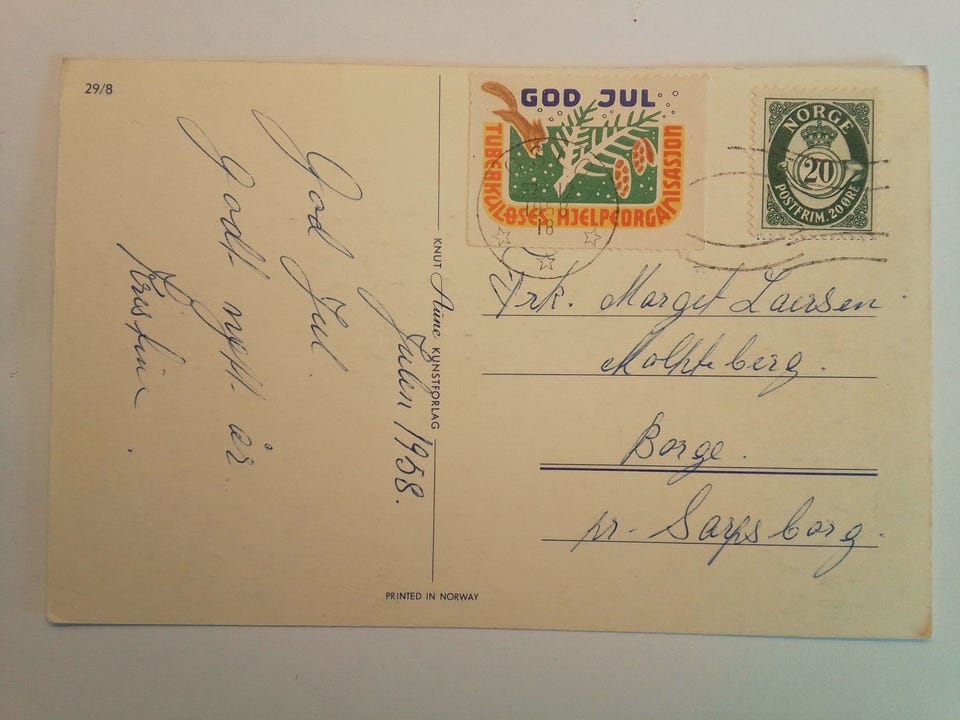 29/8
Julen 1958.
God Jul.
Godt nytt år
Kristine.
KNUT Aune KUNSTFORLAG
PRINTED IN NORWAY
GOD JUL
TUBERKULOSES HJELPEORGANISASJON
18
NORGE
20
POSTFRIM. 20 ØRE
Frk. Margit Laersen
Moltheberg.
Borge.
pr. Sarpsborg.